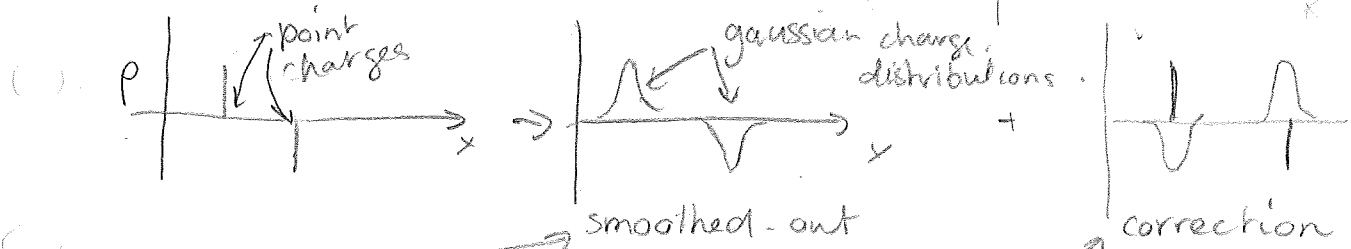 point
charges
ρ
x
gaussian charge
distributions.
x
+
smoothed-out
correction